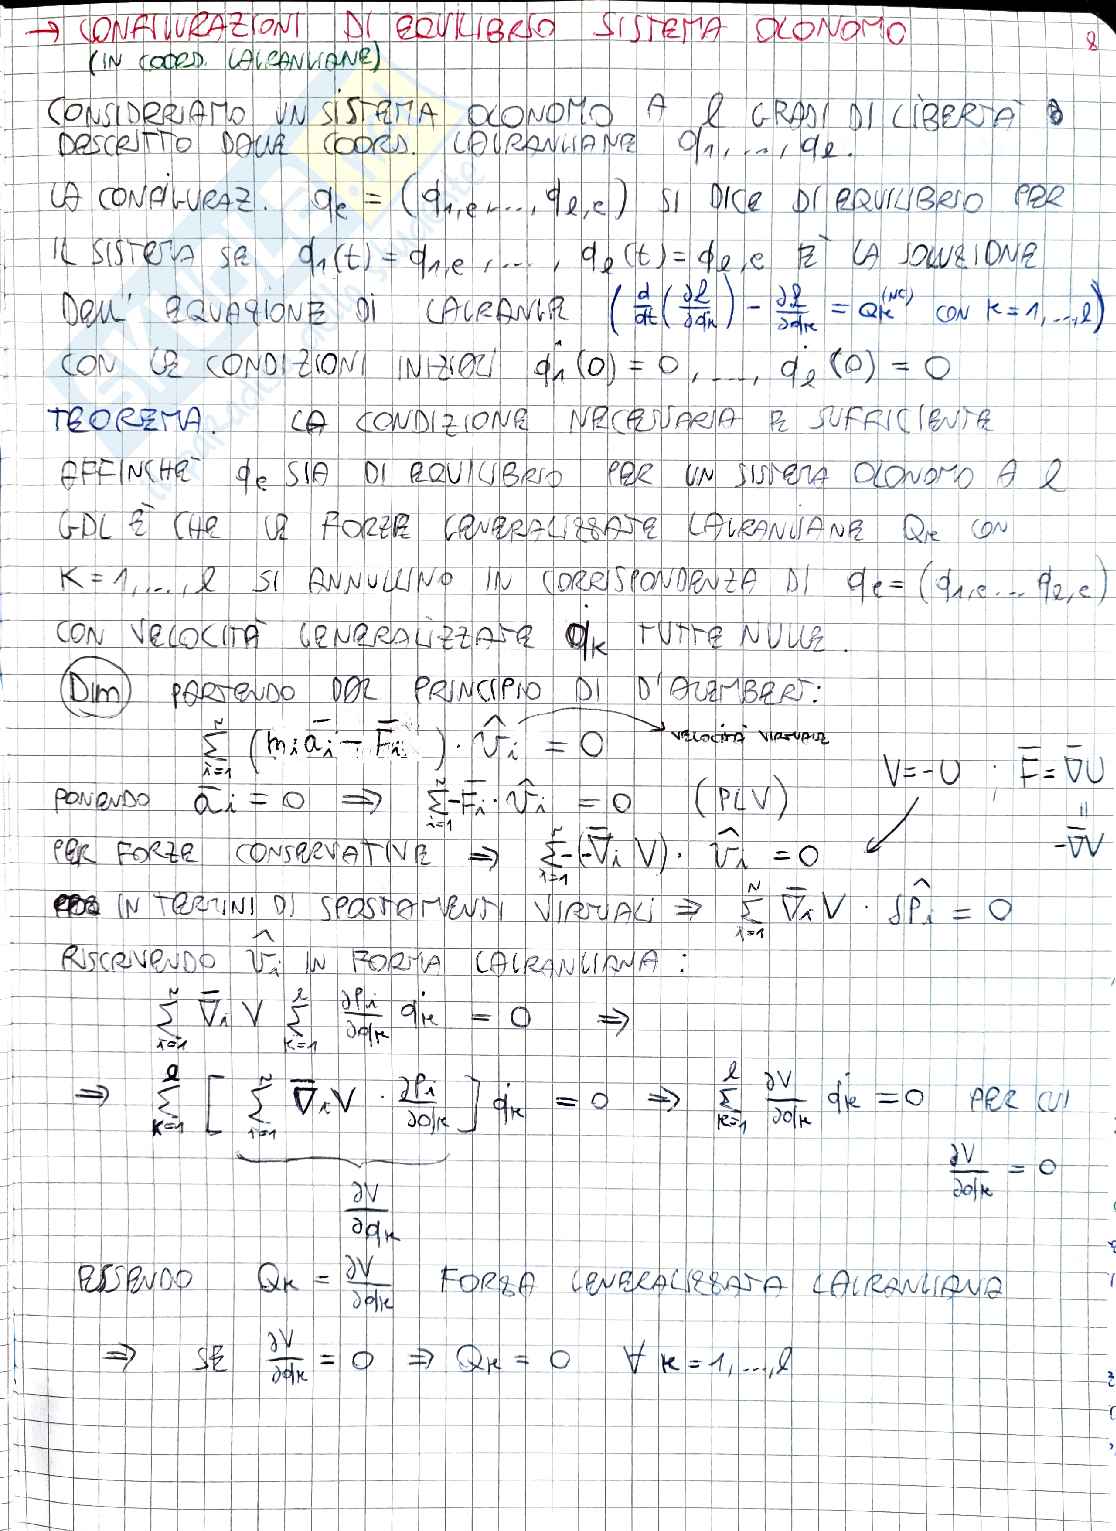 → CONFIGURAZIONI DI EQUILIBRIO SISTEMA OLONOMO
8
(IN COORD. LAGRANGIANE)
CONSIDERIAMO UN SISTEMA OLONOMO A l GRADI DI LIBERTÀ
DESCRITTO DALLE COORD. LAGRANGIANE q1, ..., ql.
LA CONFIGURAZ. qe = (q1,e, ..., ql,e) SI DICE DI EQUILIBRIO PER
IL SISTEMA SE q1(t) = q1,e, ..., ql(t) = ql,e È LA SOLUZIONE
DELL' EQUAZIONE DI LAGRANGE (d/dt(∂ℓ/∂q̇k) - ∂ℓ/∂qk = Qk^(NC) CON K = 1, ..., l)
CON LE CONDIZIONI INIZIALI q̇1(0) = 0, ..., q̇l(0) = 0
TEOREMA. LA CONDIZIONE NECESSARIA E SUFFICIENTE
AFFINCHÈ qe SIA DI EQUILIBRIO PER UN SISTEMA OLONOMO A l
GDL È CHE LE FORZE GENERALIZZATE LAGRANGIANE Qk CON
K = 1, ..., l SI ANNULLINO IN CORRISPONDENZA DI qe = (q1,e ... ql,e)
CON VELOCITÀ GENERALIZZATE q̇k TUTTE NULLE.
Dim PARTENDO DAL PRINCIPIO DI D'ALEMBERT:
∑_{i=1}^{N} (mi āi - F̄i) · v̂i = 0 → VELOCITÀ VIRTUALE
V = -U ; F̄ = ∇̄U
PONENDO āi = 0 ⇒ ∑_{i=1}^{N} -F̄i · v̂i = 0 (PLV)
= -∇̄V
PER FORZE CONSERVATIVE ⇒ ∑_{i=1}^{N} -(-∇̄i V) · v̂i = 0
IN TERMINI DI SPOSTAMENTI VIRTUALI ⇒ ∑_{i=1}^{N} ∇̄i V · δP̂i = 0
RISCRIVENDO v̂i IN FORMA LAGRANGIANA:
∑_{i=1}^{N} ∇̄i V ∑_{K=1}^{l} ∂Pi/∂qk q̇k = 0 ⇒
⇒ ∑_{K=1}^{l} [ ∑_{i=1}^{N} ∇̄i V · ∂Pi/∂qk ] q̇k = 0 ⇒ ∑_{K=1}^{l} ∂V/∂qk q̇k = 0 PER CUI
∂V/∂qk = 0
∂V/∂qk
ESSENDO Qk = ∂V/∂qk FORZA GENERALIZZATA LAGRANGIANA
⇒ SE ∂V/∂qk = 0 ⇒ Qk = 0 ∀ K = 1, ..., l